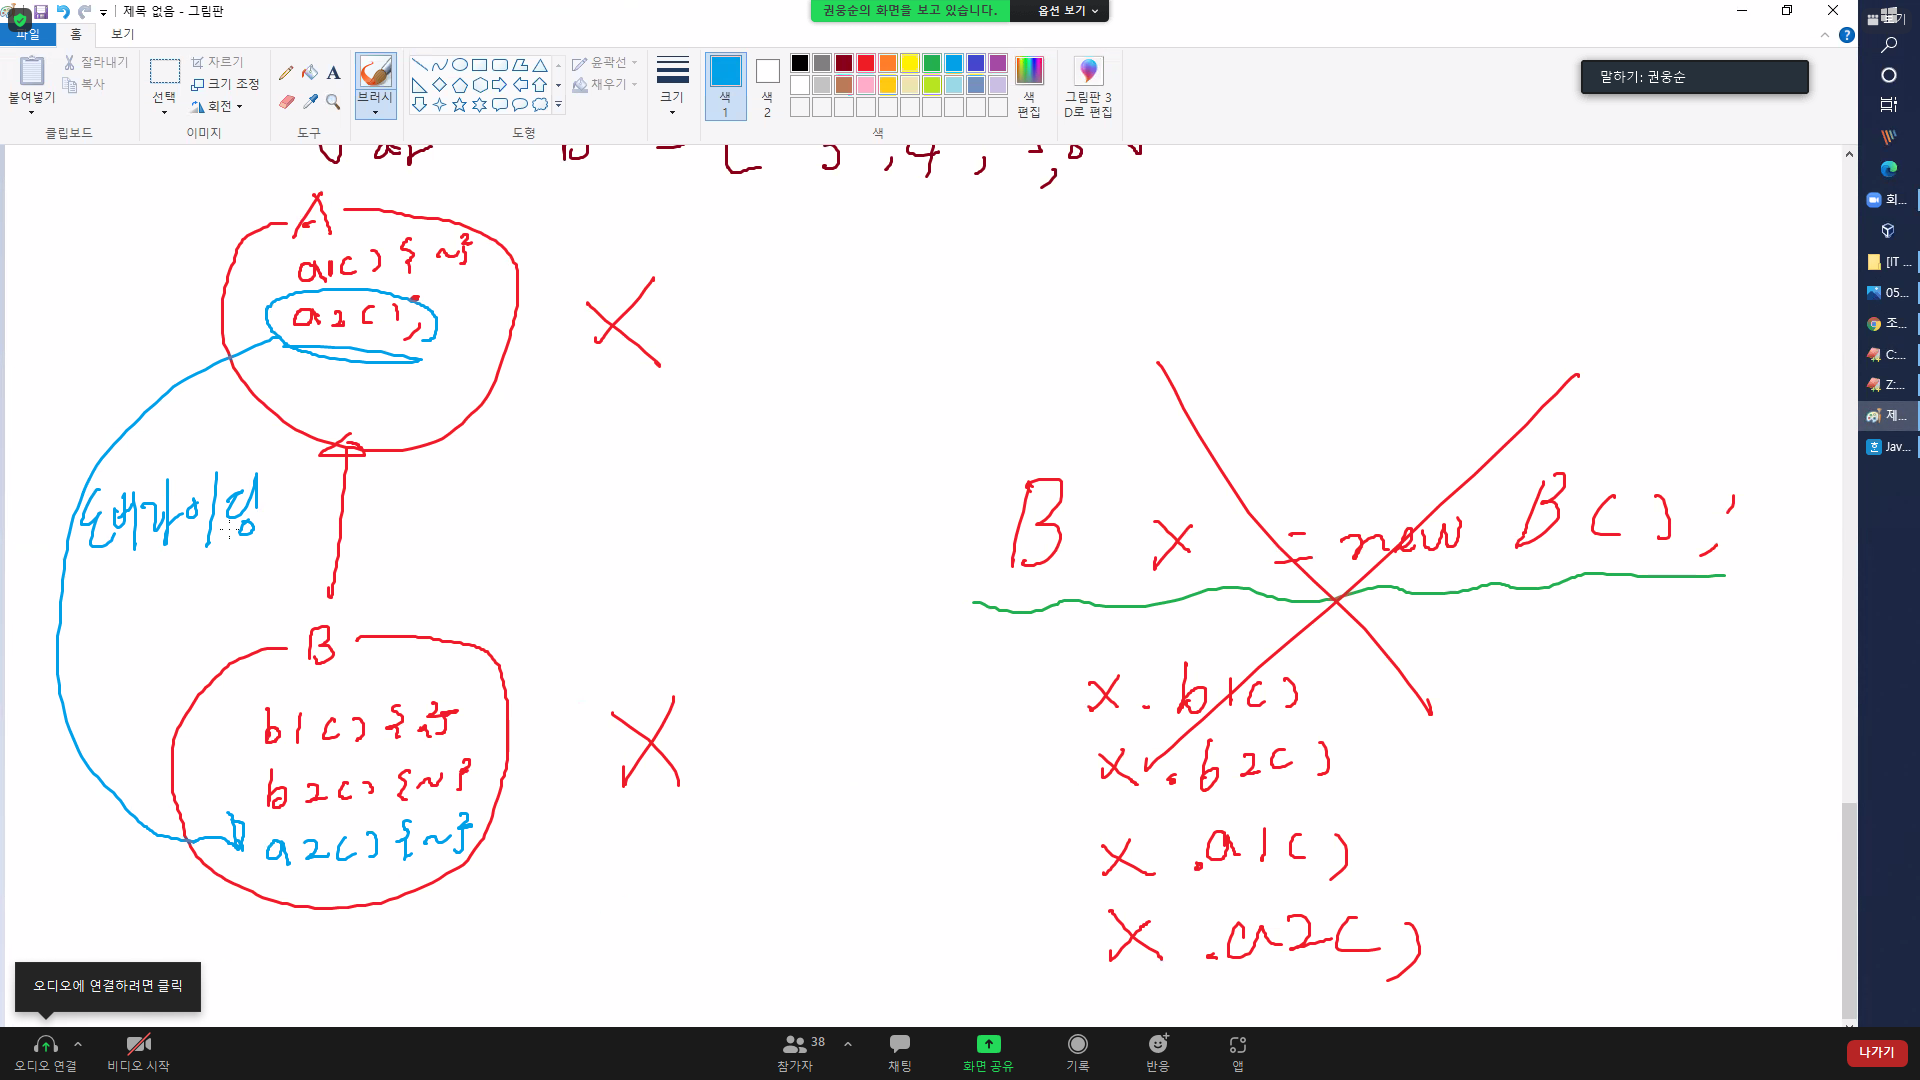 제목 없음 - 그림판
권웅순의 화면을 보고 있습니다.
옵션 보기
파일
홈
보기
붙여넣기
잘라내기
복사
클립보드
선택
자르기
크기 조정
회전
이미지
A
도구
브러시
윤곽선
채우기
도형
크기
색 1
색 2
색
색 편집
그림판 3D로 편집
말하기: 권웅순
회...
[IT ...
05...
조...
C:...
Z:...
제...
Jav...
A
a1() {~}
a2();
X
B
b1() {~}
b2() {~}
a2() {~}
X
B x = new B();
x.b1()
x.b2()
x.a1()
x.a2()
오디오에 연결하려면 클릭
오디오 연결
비디오 시작
38
참가자
채팅
화면 공유
기록
반응
앱
나가기